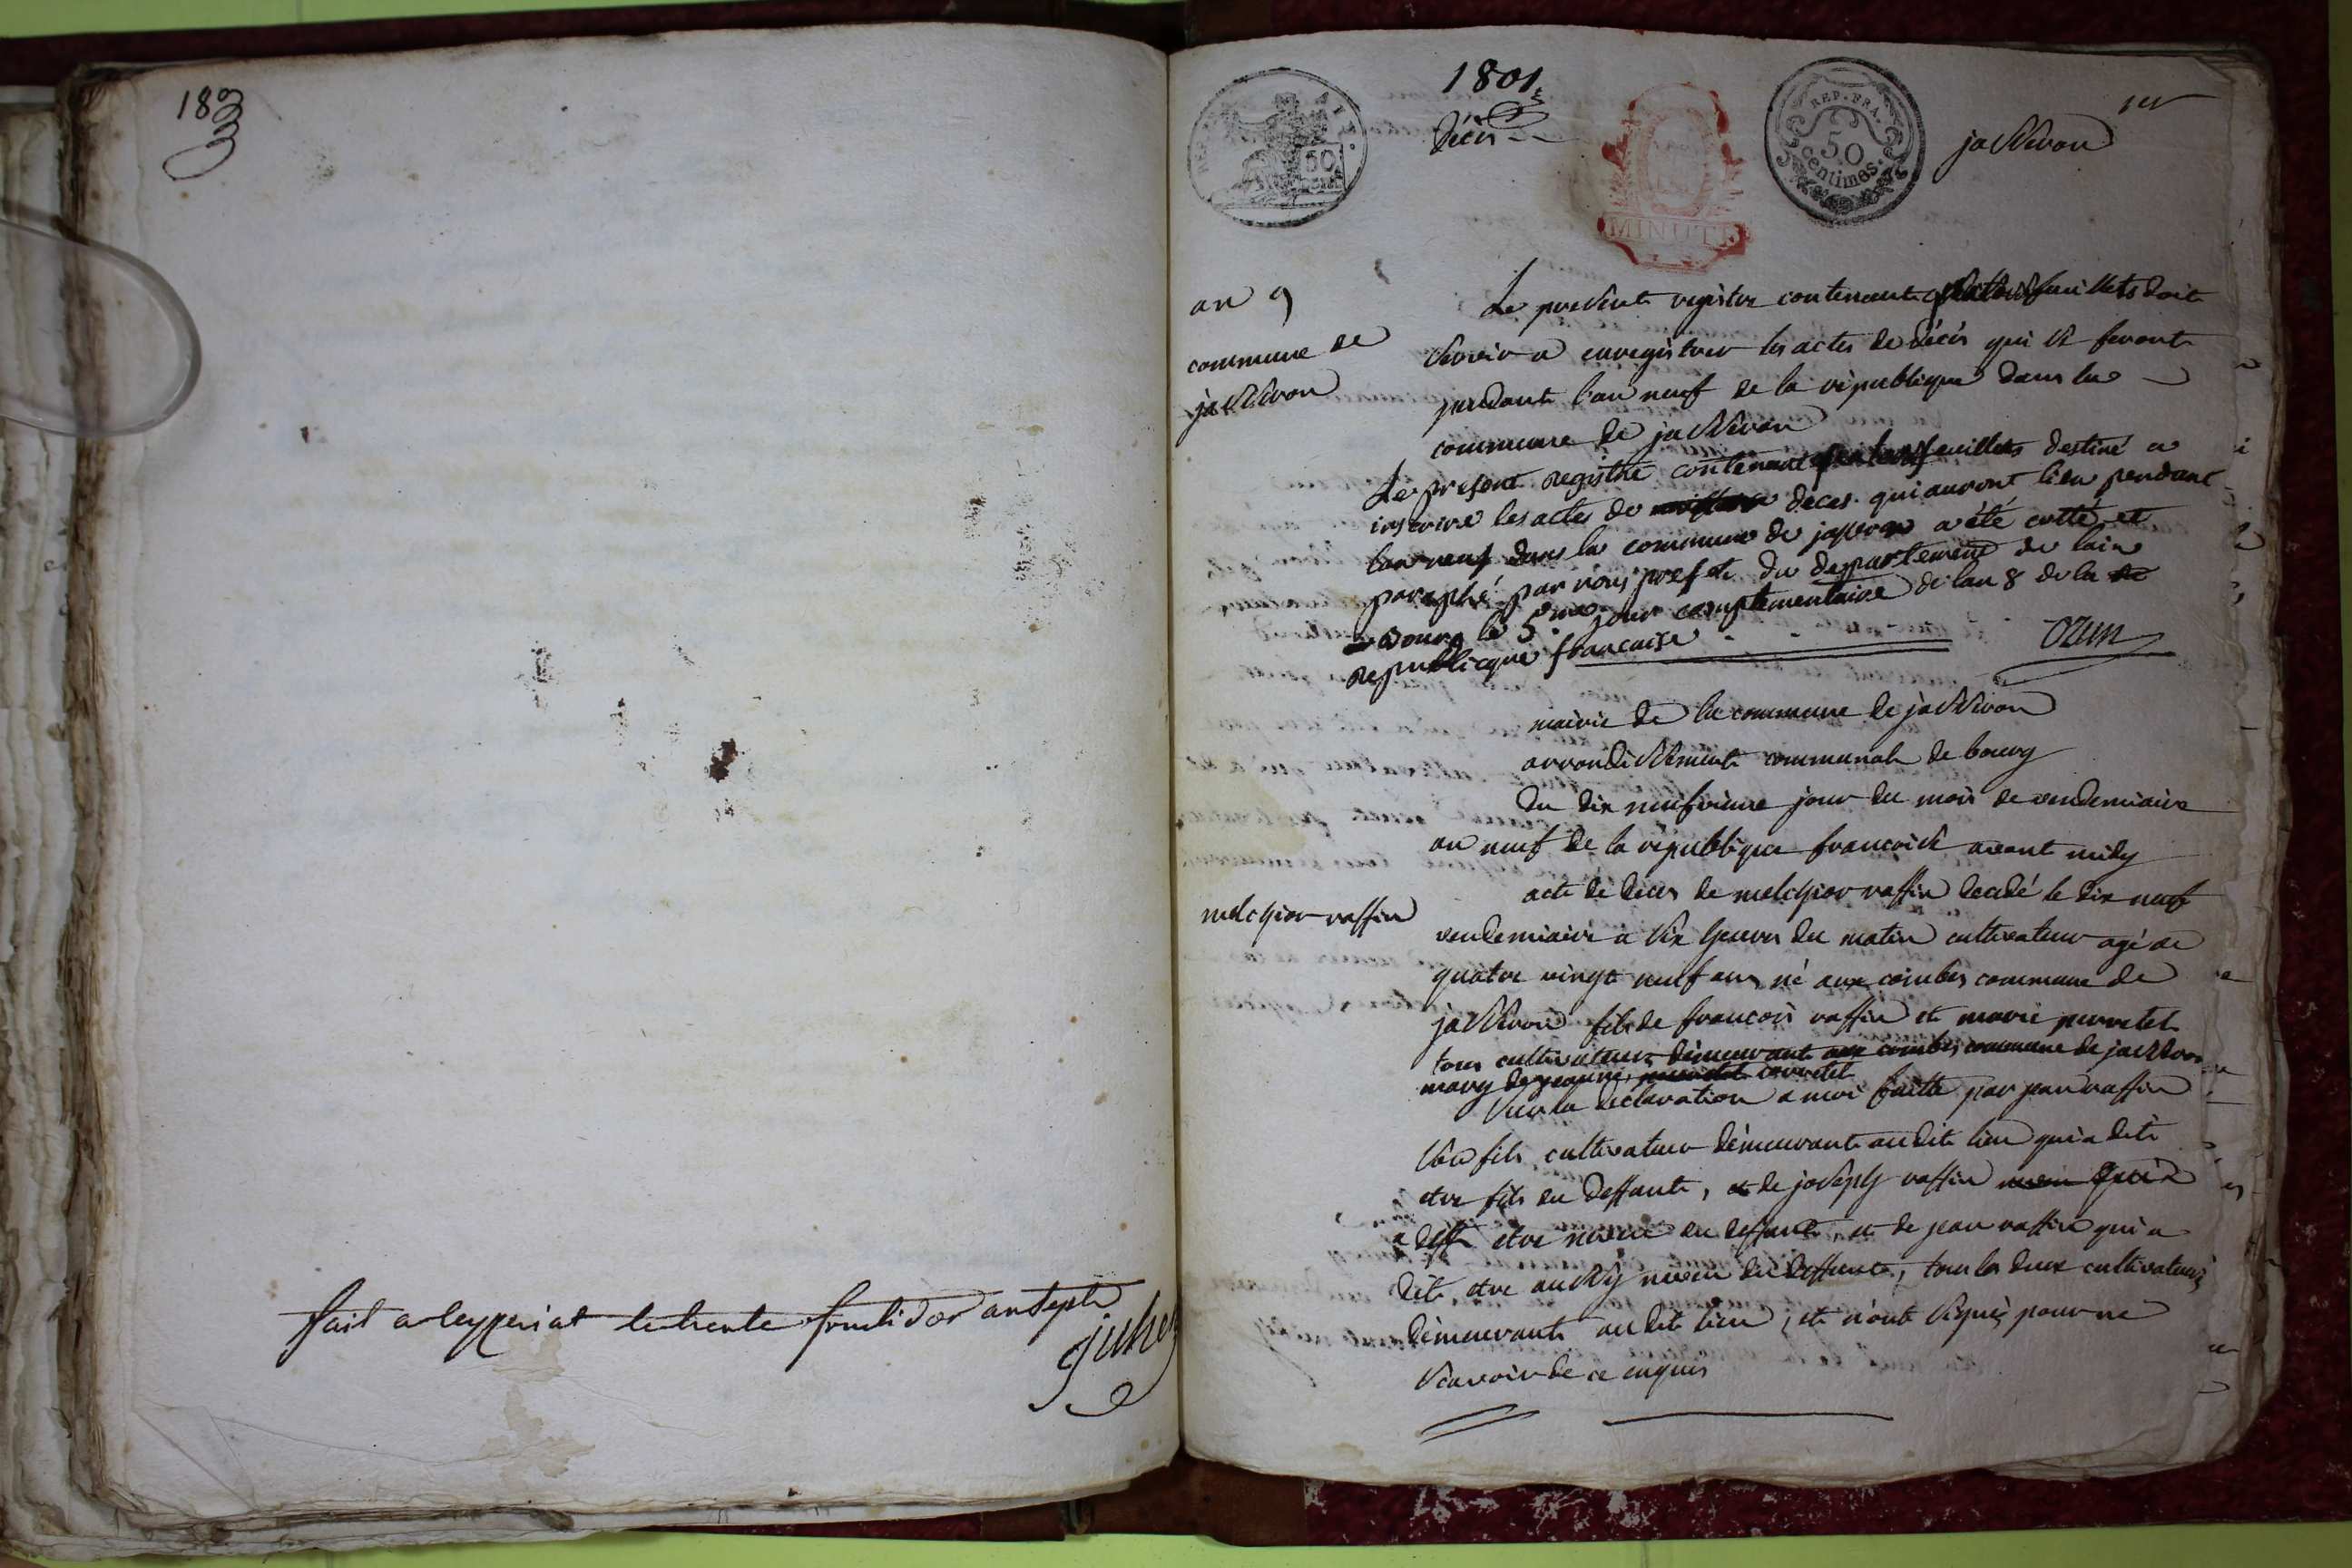 183
fait a leyperiat le trente fructidor an sept
juhe
1801
décès
REP. FRA.
50
centimes.
50
MINUTE
jasseron
1er
an 9
commune de
jasseron
Le present registre contenant feuillets doit
servir a enregistrer les actes de décès qui se feront
pendant l'an neuf de la republique dans la
commune de jasseron
Le present registre contenant feuillets destiné a
inscrire les actes de deces qui auront lieu pendant
lan neuf dans la commune de jasseron a été cotté et
paraphé par nous prefet du departement de lain
a Bourg le 5me jour complementaire de lan 8 de la
republicque francaise
ozun
mairie de la commune de jasseron
arrondissement communal de bourg
du dix neufvieme jour du mois de vendemiaire
an neuf de la republique francoise avant midy
melchior raffin
acte de deces de melchior raffin decedé le dix neuf
vendemiaire a six heures du matin cultivateur agé de
quatre vingt neuf ans né aux combes commune de
jasseron fils de francois raffin et marie perretet
tous cultivateurs demeurant aux combes commune de jasseron
mary de jeanne perretet corretet
sur la declaration a moi faitte par jean raffin
son fils cultivateur demeurant au dit lieu qui a dit
etre fils du deffunt, et de joseph raffin qui a
dit etre neveu du deffunt, et de jean raffin qui a
dit etre aussy neveu du deffunt, tous les deux cultivateurs
demeurant au dit lieu, et n'ont signés pour ne
scavoir de ce enquis